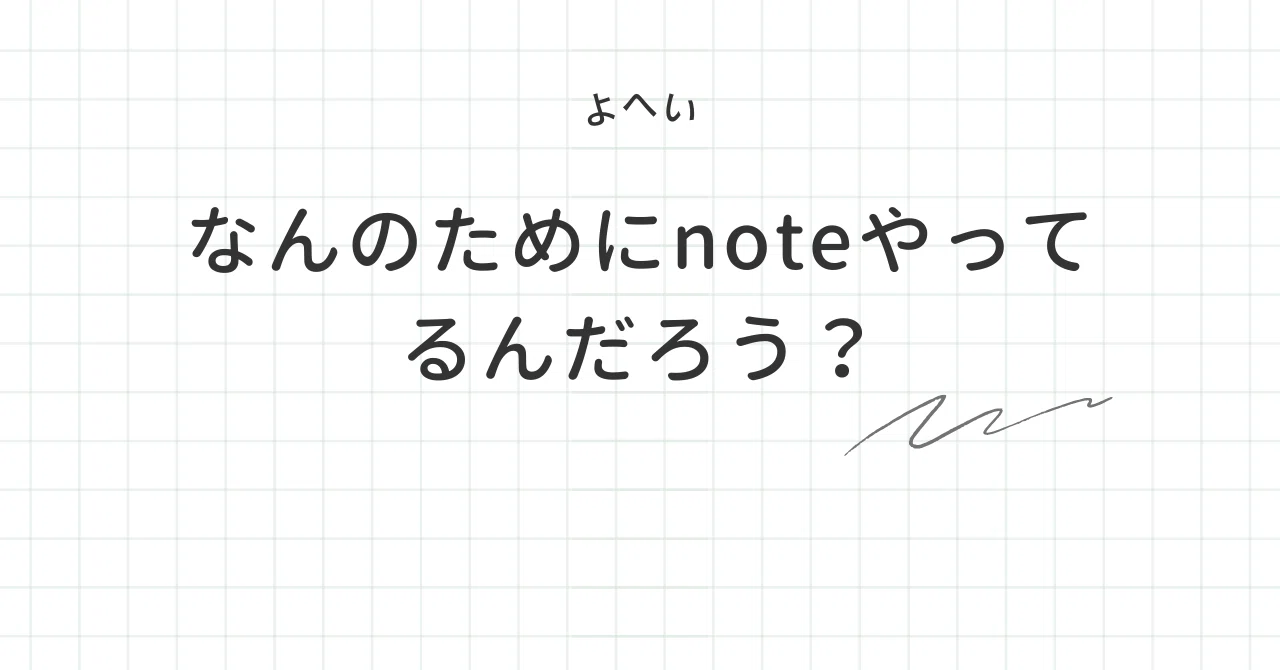 よへい
なんのためにnoteやって
るんだろう？